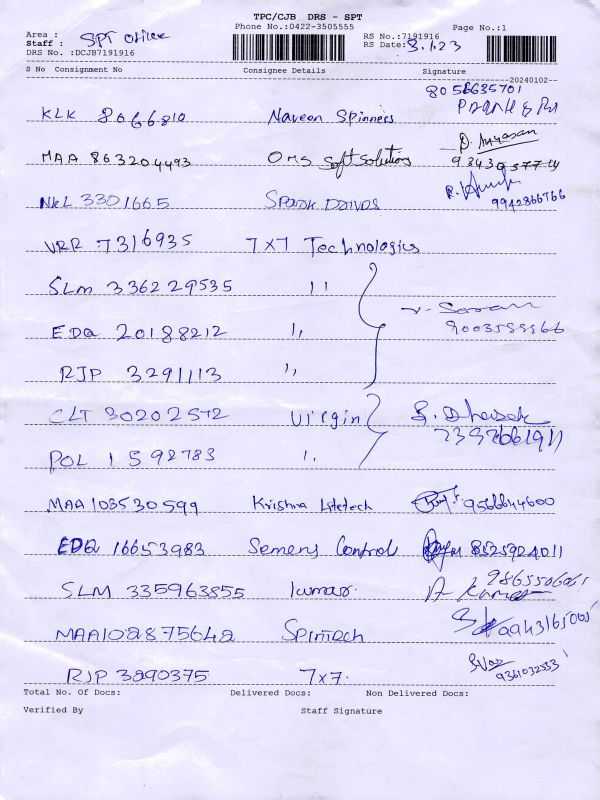 TPC/CJB DRS - SPT
Phone No.:0422-3505555
Page No.:1
Area : SPT Office
RS No.:7191916
Staff :
RS Date: 3.1.23
DRS No. :DCJB7191916
S No Consignment No Consignee Details Signature
20240102
8056635701
KLK 8066810 Naveen Spinners
MAA 863204493 OMS Soft Solutions
NKL 3301665 Spark Drives
9942866766
VRR 7316935 7x7 Technologies
SLM 336229535 11
EDQ 20188212 1,
9003555566
RJP 3291113 1,
CLT 30202572 Virgin
POL 1592783 1.
MAA103530599 Krishna Litetech 9566644600
EDQ 16653983 Semens Control 8525924011
SLM 335963855 kumar. 9865506061
MAA102875642 Spintech
RJP 3290375 7x7. 9361032533
Total No. Of Docs: Delivered Docs: Non Delivered Docs:
Verified By Staff Signature